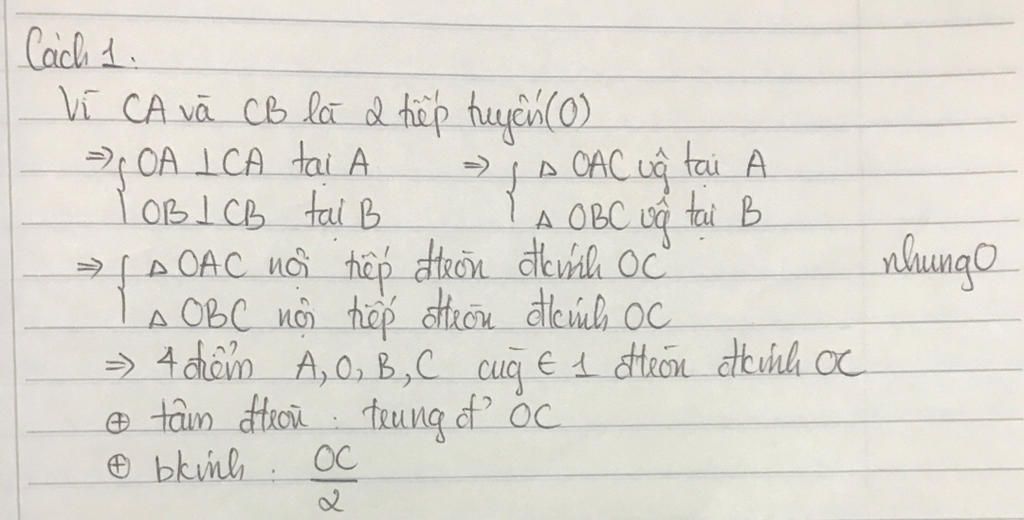 Cách 1.
Vì CA và CB là 2 tiếp tuyến (O)
⇒ { OA ⊥ CA tại A ⇒ { Δ OAC vg̃ tại A
OB ⊥ CB tại B Δ OBC vg̃ tại B
⇒ { Δ OAC nội tiếp đtròn đkính OC nhungO
Δ OBC nội tiếp đtròn đkính OC
⇒ 4 điểm A, O, B, C cùg ∈ 1 đtròn đkính OC
⊕ tâm đtròn : trung đ' OC
⊕ bkính : OC/2